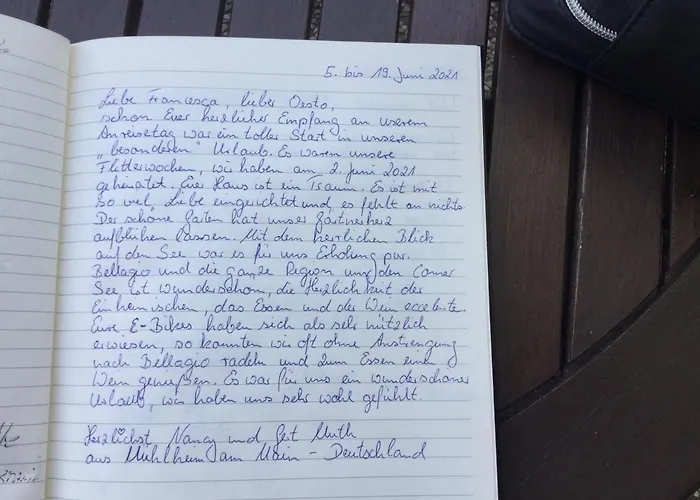 5. bis 19. Juni 2021
Liebe Francesca, lieber Oesto,
schon Euer herzlicher Empfang an unserem
Anreisetag war ein toller Start in unseren
„besonderen" Urlaub. Es waren unsere
Flitterwochen, wir haben am 2. Juni 2021
geheiratet. Euer Haus ist ein Traum. Es ist mit
so viel Liebe eingerichtet und es fehlt an nichts.
Der schöne Garten hat unser Gärtnerherz
aufblühen lassen. Mit dem herrlichen Blick
auf den See war es für uns Erholung pur.
Bellagio und die ganze Region um den Comer
See ist wunderschön, die Herzlichkeit der
Einheimischen, das Essen und der Wein eccelente.
Eure E-Bikes haben sich als sehr nützlich
erwiesen, so konnten wir oft ohne Anstrengung
nach Bellagio radeln und zum Essen einen
Wein genießen. Es war für uns ein wunderschöner
Urlaub, wir haben uns sehr wohl gefühlt.
Herzlichst Nancy und Geit Muth
aus Mühlheim am Main – Deutschland